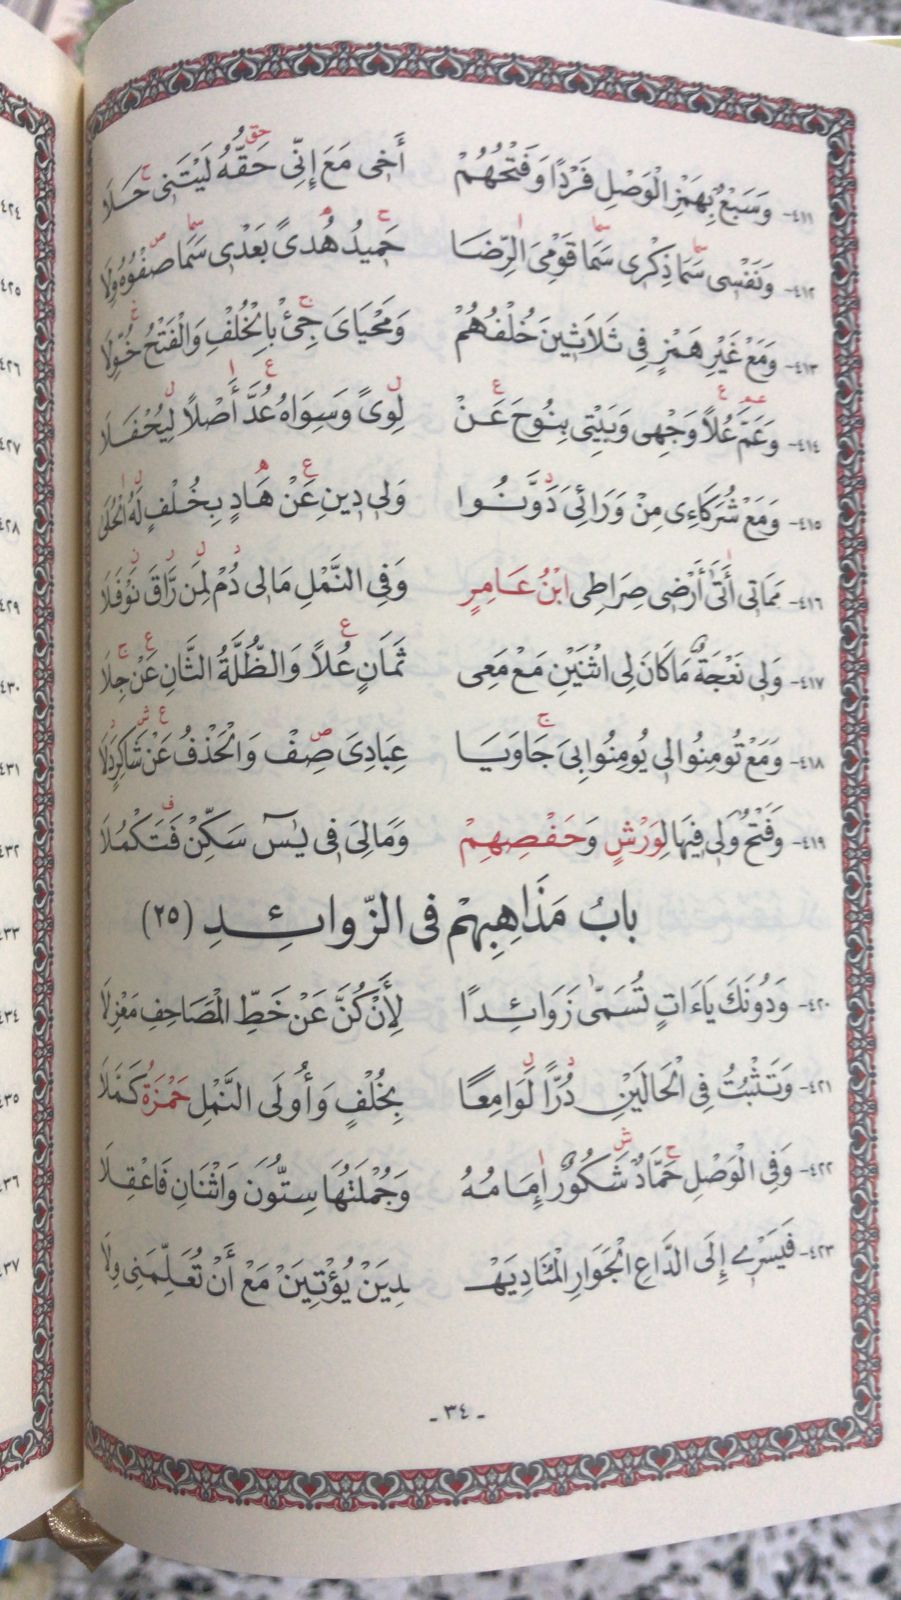 ٤١١- وَسَبْعٌ بِهَمْزِ الْوَصْلِ فَرْدًا وَفَتْحُهُمْ أَخِى مَعَ إِنِّى حَقُّهُ لَيْتَنِى حَلَا
٤١٢- وَنَفْسِى سَمَا ذِكْرِى سَمَا قَوْمِىَ الرِّضَا حَمِيدُ هُدىً بَعْدِى سَمَا صَفْوُهُ وِلَا
٤١٣- وَمَعْ غَيْرِ هَمْزٍ فِى ثَلَاثِينَ خُلْفُهُمْ وَمَحْيَاىَ جِئْ بِالْخُلْفِ وَالْفَتْحُ خُوِّلَا
٤١٤- وَعَمَّ عُلاً وَجْهِى وَبَيْتِى بِنُوحَ عَنْ لِوىً وَسِوَاهُ عُدَّ أَصْلًا لِيُحْفَلَا
٤١٥- وَمَعْ شُرَكَاءِى مِنْ وَرَائِى دَوَّنُوا وَلِى دِينِ عَنْ هَادٍ بِخُلْفٍ لَهُ الْحُلَى
٤١٦- مَمَاتِى أَتَى أَرْضِى صِرَاطِى ابْنُ عَامِرٍ وَفِى النَّمْلِ مَالِى دُمْ لِمَن رَّاقَ نَوْفَلَا
٤١٧- وَلِى نَعْجَةٌ مَا كَانَ لِى اثْنَيْنِ مَعْ مَعِى ثَمَانٍ عُلاً وَالظُّلَّةُ الثَّانِ عَنْ جِلَا
٤١٨- وَمَعْ تُومِنُوا لِى يُومِنُوا بِىَ جَا وَيَا عِبَادِىَ صِفْ وَالْحَذْفُ عَنْ شَاكِرٍ دَلَا
٤١٩- وَفَتْحُ وَلِى فِيهَا لِوَرْشٍ وَحَفْصِهِمْ وَمَالِىَ فِى يٰسٓ سَكِّنْ فَتَكْمُلَا
بابُ مَذَاهِبِهِمْ فى الزّوائِدِ (٢٥)
٤٢٠- وَدُونَكَ يَاءَاتٍ تُسَمَّى زَوَائِدًا لِأَنْ كُنَّ عَنْ خَطِّ الْمَصَاحِفِ مَعْزِلَا
٤٢١- وَتَثْبُتُ فِى الْحَالَيْنِ دُرًّا لَوَامِعًا بِخُلْفٍ وَأُولَى النَّمْلِ حَمْزَةُ كَمَّلَا
٤٢٢- وَفِى الْوَصْلِ حَمَّادٌ شَكُورٌ إِمَامُهُ وَجُمْلَتُهَا سِتُّونَ وَاثْنَانِ فَاعْقِلَا
٤٢٣- فَيَسْرِے إِلَى الدَّاعِ الْجَوَارِ الْمُنَادِ يَهْـ ـدِيَنْ يُؤْتِيَنْ مَعْ أَنْ تُعَلِّمَنِى وِلَا
- ٣٤ -